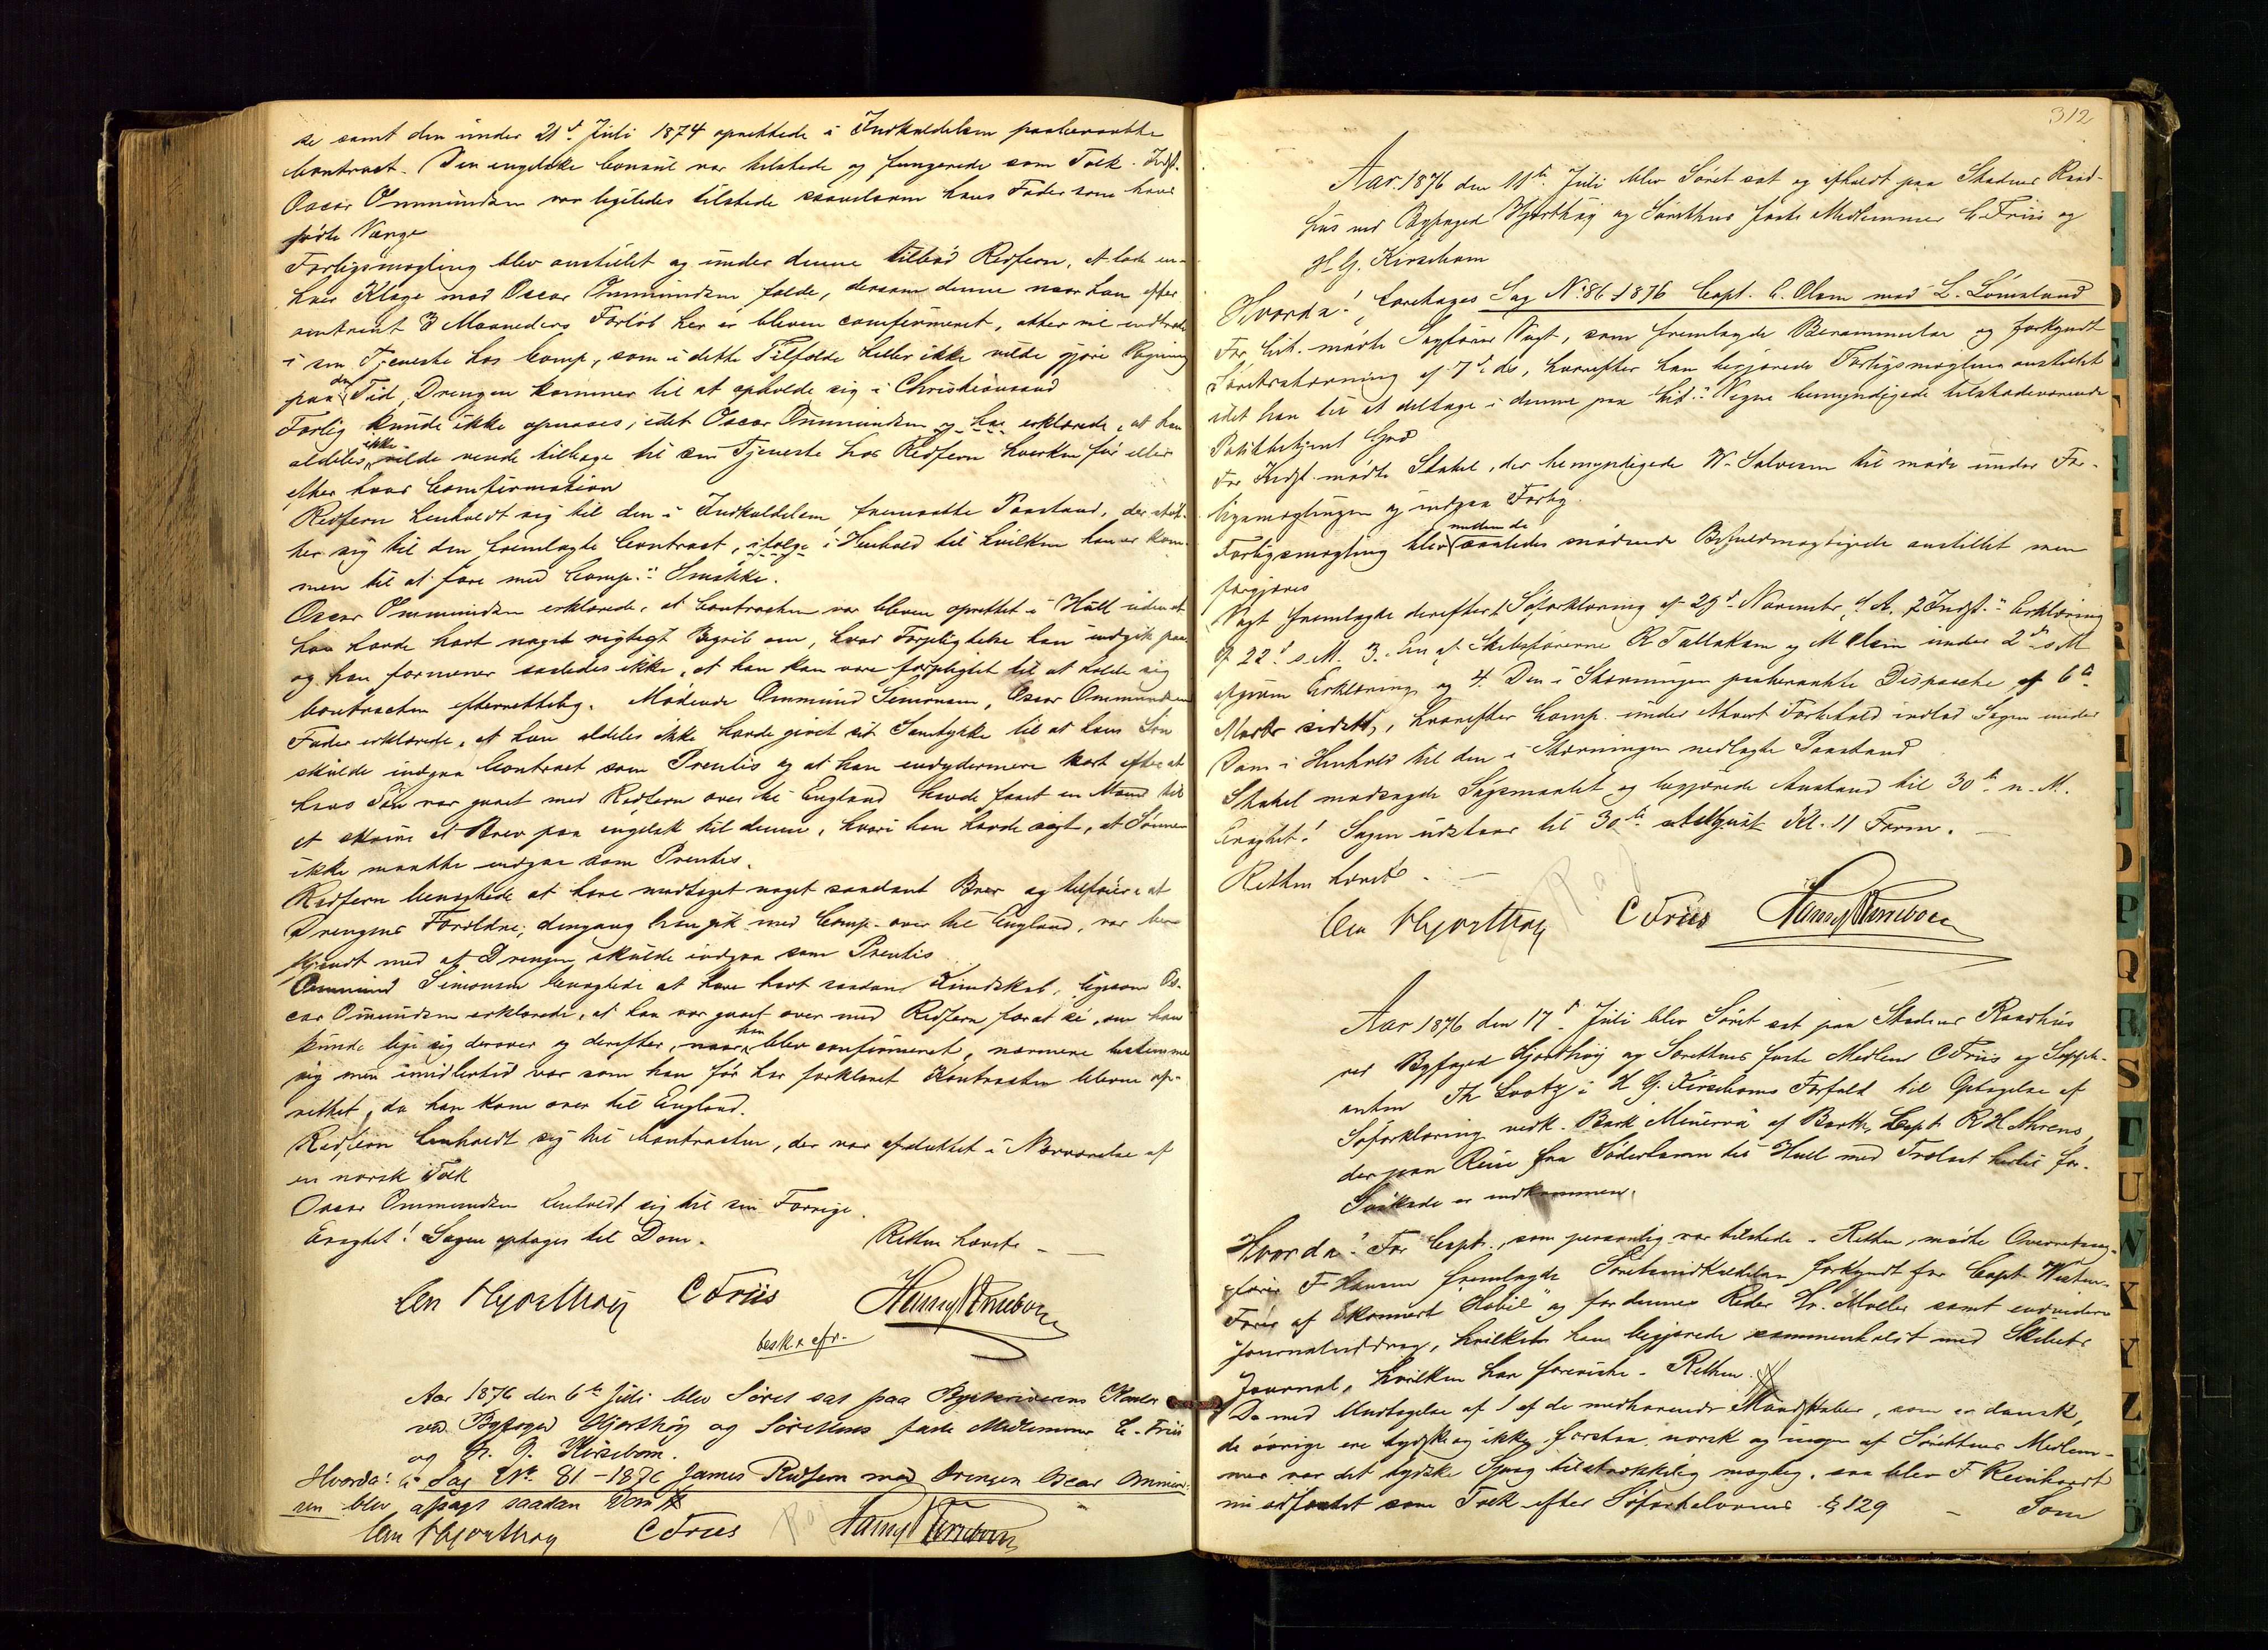 se samt den under 21de Juli 1874 oprettede i Indkaldelsen paaberaabte
Contract. Den engelske Consul var tilstede og fungerede som Tolk. Indst.
Oscar Ommundsen var ligeledes tilstede saavelsom hans Fader som hans
fødte Værge
Forligsmægling blev anstillet og under denne tilbød Redfern, at lade en-
hver Klage mod Oscar Ommundsen falde, dersom denne naar han efter
omtrent 3 Maaneders Forløb her er bleven confirmeret, atter vil indtræde
i sin Tjeneste hos Comp., som i dette Tilfælde heller ikke vilde gjøre Regning
paa den Tid, Drengen kommer til at opholde sig i Christianssand
Forlig kunde ikke opnaaes, idet Oscar Ommundsen og har erklærede, at han
aldeles ikke vilde vende tilbage til sin Tjeneste hos Redfern hverken før eller
efter hans Confirmation
Redfern henholdt sig til den i Indkaldelsen fremsatte Paastand, der støt-
ter sig til den fremlagte Contract, ifølge i Henhold til hvilken han er kom-
men til at fare med Comp.s Smakke.
Oscar Ommundsen erklærede, at Contracten var bleven oprettet i Hull uden at
han havde havt noget rigtigt Begreb om, hvad Forpligtelse han indgik paa
og han formener saaledes ikke, at han kan være forpligtet til at holde sig
Contracten efterrettelig. Mødende Ommund Simonsen, Oscar Ommundsens
Fader erklærede, at han aldeles ikke havde givet sit Samtykke til at hans Søn
skulde indgaa Contract som Prentis og at han endydermere kort efter at
hans Søn var gaaet med Redfern over til England havde faaet en Mand til
at skrive et Brev paa engelsk til denne, hvori han havde sagt, at Sønnen
ikke maatte indgaa som Prentis.
Redfern benægtede at have modtaget noget saadant Brev og tilføier at
Drengens Forældre, dengang han gik med Comp. over til England, var be-
kjendt med at Drengen skulde indgaa som Prentis
Ommund Simonsen benægtede at have havt saadan Kundskab, ligesom Os-
car Ommundsen erklærede, at han var gaaet over med Redfern for at se, om han
kunde lige sig derover og derefter, naar han blev confirmeret, nærmere bestemme
sig men imidlertid var som han før har forklaret Kontracten bleven op-
rettet, da han kom over til England.
Redfern henholdt sig til Contracten, der var afsluttet i Nærværelse af
en norsk Tolk
Oscar Ommundsen henholdt sig til sin Forrige.
Eragtet! Sagen optages til Dom. Retten hævet
Chr Hjorthøy C Friis
besk. efr.
Aar 1876 den 6te Juli blev Søret sat paa Byskriverens Kontor
ved Byfoged Hjorthøy og Sørettens faste Medlemmer C. Friis
og H. G. Kirsebom.
Hvorda: i Sag No. 81-1876 James Redfern mod Drengen Oscar Ommund-
sen blev afsagt saadan Dom
Chr Hjorthøy C Friis
312
Aar 1876 den 11te Juli blev Søret sat og afholdt paa Stadens Raad-
hus ved Byfoged Hjorthøy og Sørettens faste Medlemmer C. Friis og
H. G. Kirsebom
Hvorda! Foretages Sag No. 86-1876 Capt. C. Olsen mod L. Lømsland
For Cit. mødte Sagfører Vogt, som fremlagde Berammelse og forkyndt
Søretsstævning af 7de ds, hvorefter han begjærede Forligsmægling anstillet
idet han til at deltage i denne paa Cit.s Vegne bemyndigede tilstedeværende
Politibetjent
For Indst. mødte Stabel, der bemyndigede W. Salvesen til møde under For-
ligsmæglingen og indgaa Forlig.
Forligsmægling blev mellem de saaledes mødende Befuldmægtigede anstillet men
forgjæves
Vogt fremlagde derefter 1 Søforklaring af 29de November f. A. 2 Indst.s Erklæring
af 22de s. M. 3. En af Skibsførerne R Tallaksen og M Olsen under 2den s. M
afgiven Erklæring og 4. Den i Stævningen paaberaabte Dispasche af 6te
Marts sidstl., hvorefter Comp. under Alvert Forbehold indlod Sagen under
Dom i Henhold til den i Stævningen nedlagte Paastand
Stabel modsagde Søgsmaalet og begjærede Anstand til 30te n. M.
Eragtet! Sagen udstaar til 30te August Kl. 11 Form.
Retten hævet
Chr Hjorthøy C Friis
Aar 1876 den 17de Juli blev Søret sat paa Stadens Raadhus
ved Byfoged Hjorthøy og Sørettens faste Medlem C Friis og Supple-
anten Th. Lootz i H. G. Kirseboms Forfald til Optagelse af
Søforklaring vedk. Bark Minerva af Barth, Capt. R H Ahrens,
der paa Reise fra Söderhamn til Hull med Trælast hertil for
Lækage er indkommen.
Hvorda! For Capt., som personlig var tilstede i Retten, mødte Overretssag-
fører F Hansen fremlagde Søretsindkaldelse forkyndt for Capt.
Fører af Skonnert "Habil" og for dennes Reder Hr. Møller samt endvidere
Journaluddrag, hvilket han begjærede sammenholdt med Skibets
Journal, hvilken han foreviste i Retten.
Da med Undtagelse af 1 af de medhavende Mandskaber, som er dansk,
de øvrige ere tydske og ikke forstaa norsk og ingen af Sørettens Medlem-
mer var det tydske Sprog tilstrækkelig mægtig, saa blev F Reinhardt
nu udfæstet som Tolk efter Søfartslovens § 129 Som
E
P
Q
R
S
T
U
X
Y
Z